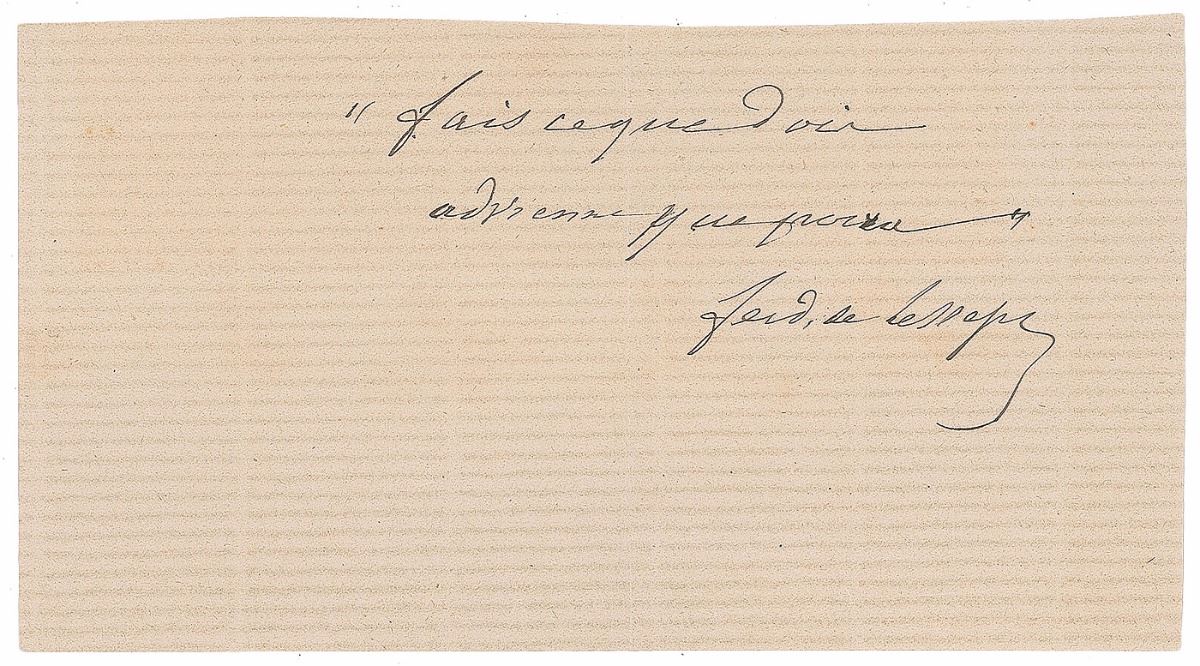 "fais ce que dois
advienne que pourra"
Ferd. de Lesseps